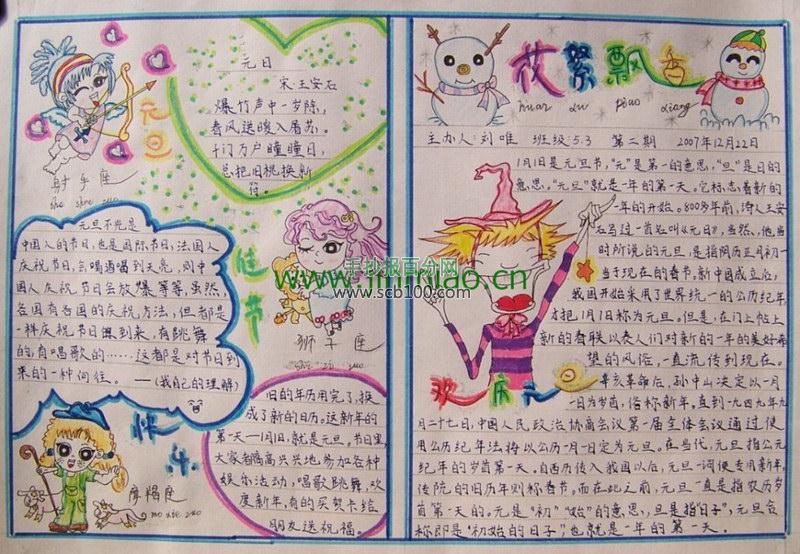 元日
宋:王安石
爆竹声中一岁除,
春风送暖入屠苏。
千门万户曈曈日,
总把旧桃换新
符。
元旦
射手座
she shou zuo
元旦不光是
中国人的节日,也是国际节日,法国人
庆祝节日,会喝酒唱到天亮,则中
国人庆祝节日会放爆竹等,虽然,
各国有各国的庆祝方法,但都是
一样庆祝节日
的,有唱歌的……这都是对节日到
来的一种向往。——(我自己的理解)
佳节
狮子座
shi zi zuo
快
摩羯座
mo xie zuo
旧的年历用完了,换
成了新的日历。这新年的
第一天—1月1日,就是元旦。节日里,
大家都高高兴兴地参加各种
娱乐活动,唱歌跳舞,欢
度新年,有的买贺卡给
朋友送祝福。
花絮飘香
huar xu piao xiang
主办人:刘唯 班级:5.3 第二期 2007年12月22日
1月1日是元旦节,“元”是第一的意思,“旦”是日的
意思。“元旦”就是一年的第一天。它标志着新的
一年的开始。800多年前,诗人王安
石写过一首处叫《元日》,当然,他当
时所说的元旦,是指阴历正月初一
当于现在的春节,新中国成立后,
我国开始采用了世界统一的公历纪年
才把1月1日称为元旦。但是,在门上帖上
新的春联以表人们对新的一年的美好希
望的风俗,一直流传到现在。
欢庆元
辛亥革命后,孙中山决定以一月
一日为岁首,俗称新年。直到一九四九年九
月二十七日,中国人民政治协商会议第一届全体会议通过使
用公历纪年法,将以公历一月一日定为元旦。在当代,元旦指公元
纪年的岁首第一天。自西历传入我国以后,元旦一词便专用新年,
传统的旧历年则称春节。而在此之前,元旦一直是指农历岁
首第一天的。元是“初”“始”的意思,旦是指日子”,元旦合
称即是“初始的日子”也就是一年的第一天。
www.jinmiao.cn
手抄报百分网
www.scb100.com